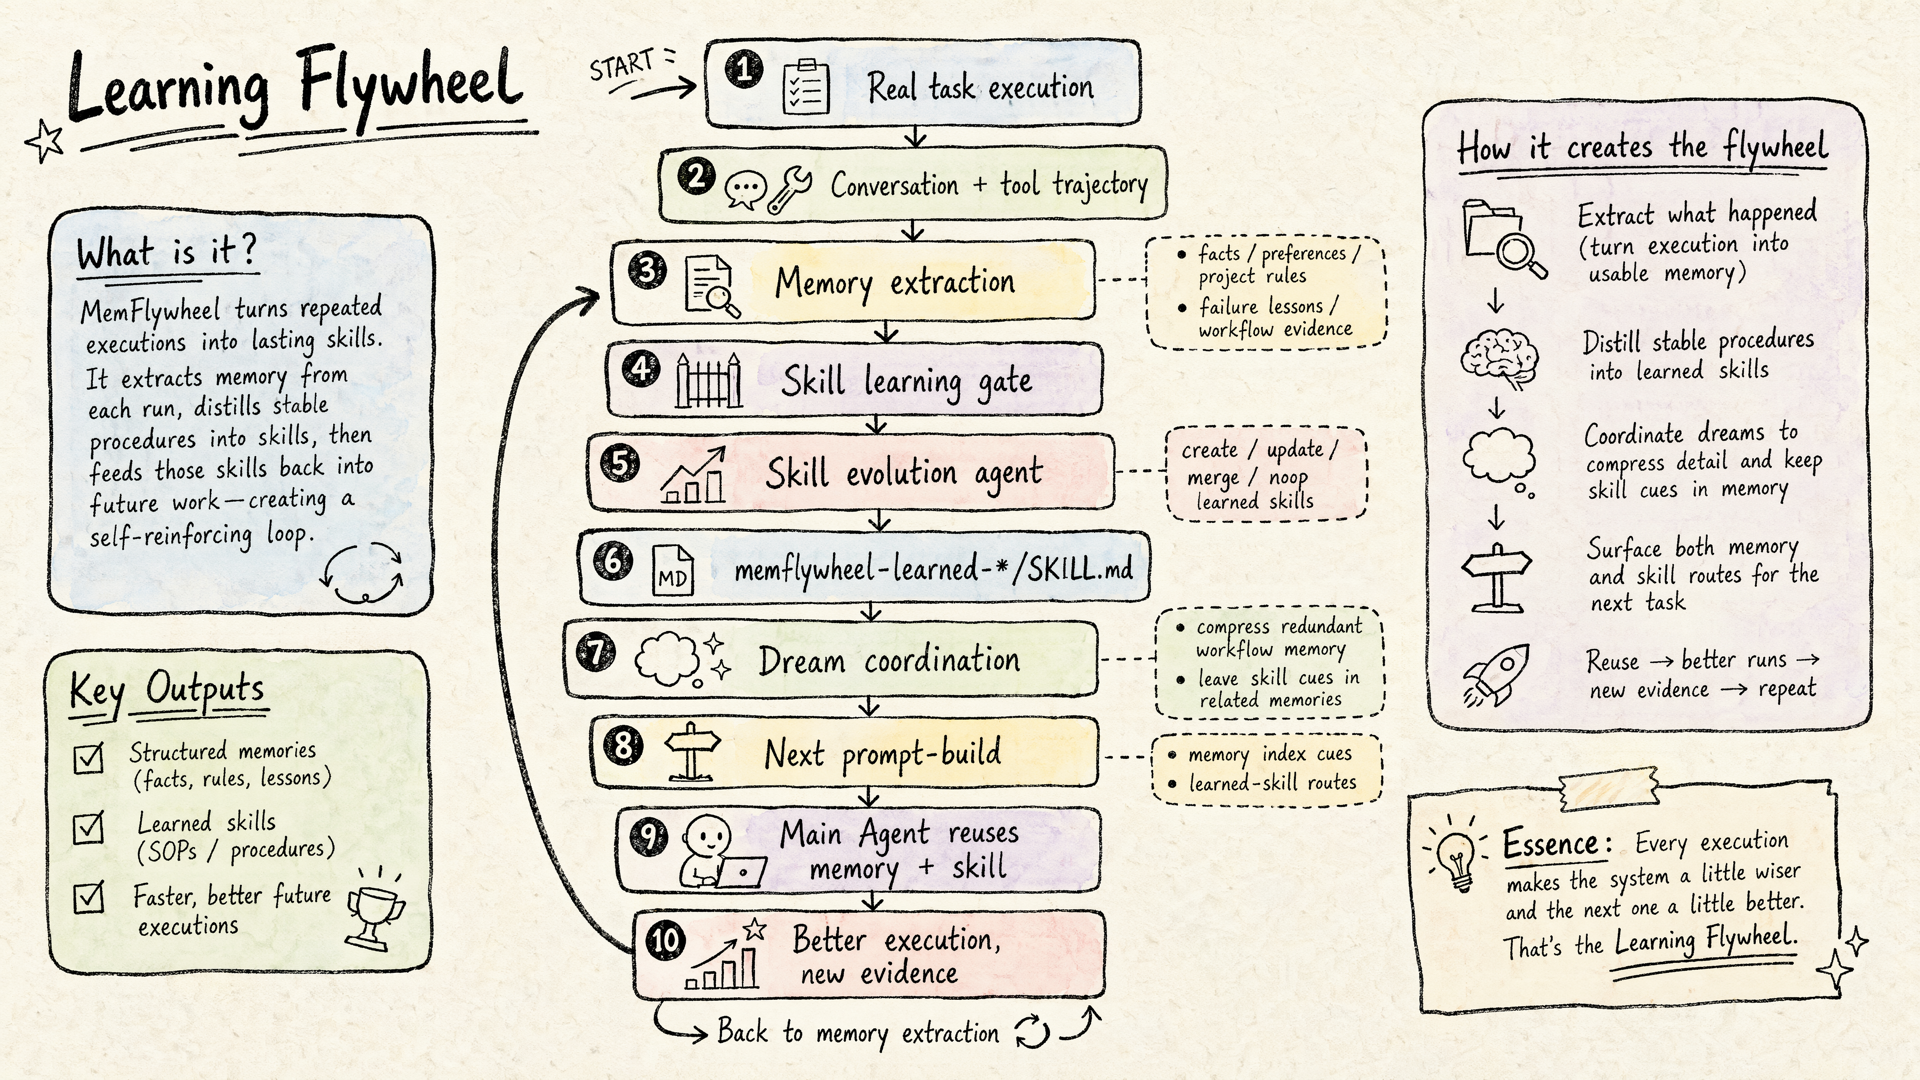 Learning Flywheel
What is it?
MemFlywheel turns repeated
executions into lasting skills.
It extracts memory from
each run, distills stable
procedures into skills, then
feeds those skills back into
future work—creating a
self-reinforcing loop.
Key Outputs
Structured memories
(facts, rules, lessons)
Learned skills
(SOPs / procedures)
Faster, better future
executions
START
1 Real task execution
2 Conversation + tool trajectory
3 Memory extraction
• facts / preferences /
project rules
• failure lessons /
workflow evidence
4 Skill learning gate
5 Skill evolution agent
create / update /
merge / noop
learned skills
6 MD memflywheel-learned-*/SKILL.md
7 Dream coordination
• compress redundant
workflow memory
• leave skill cues in
related memories
8 Next prompt-build
• memory index cues
• learned-skill routes
9 Main Agent reuses
memory + skill
10 Better execution,
new evidence
Back to memory extraction
How it creates the flywheel
Extract what happened
(turn execution into
usable memory)
Distill stable procedures
into learned skills
Coordinate dreams to
compress detail and keep
skill cues in memory
Surface both memory
and skill routes for the
next task
Reuse → better runs →
new evidence → repeat
Essence: Every execution
makes the system a little wiser
and the next one a little better.
That's the Learning Flywheel.